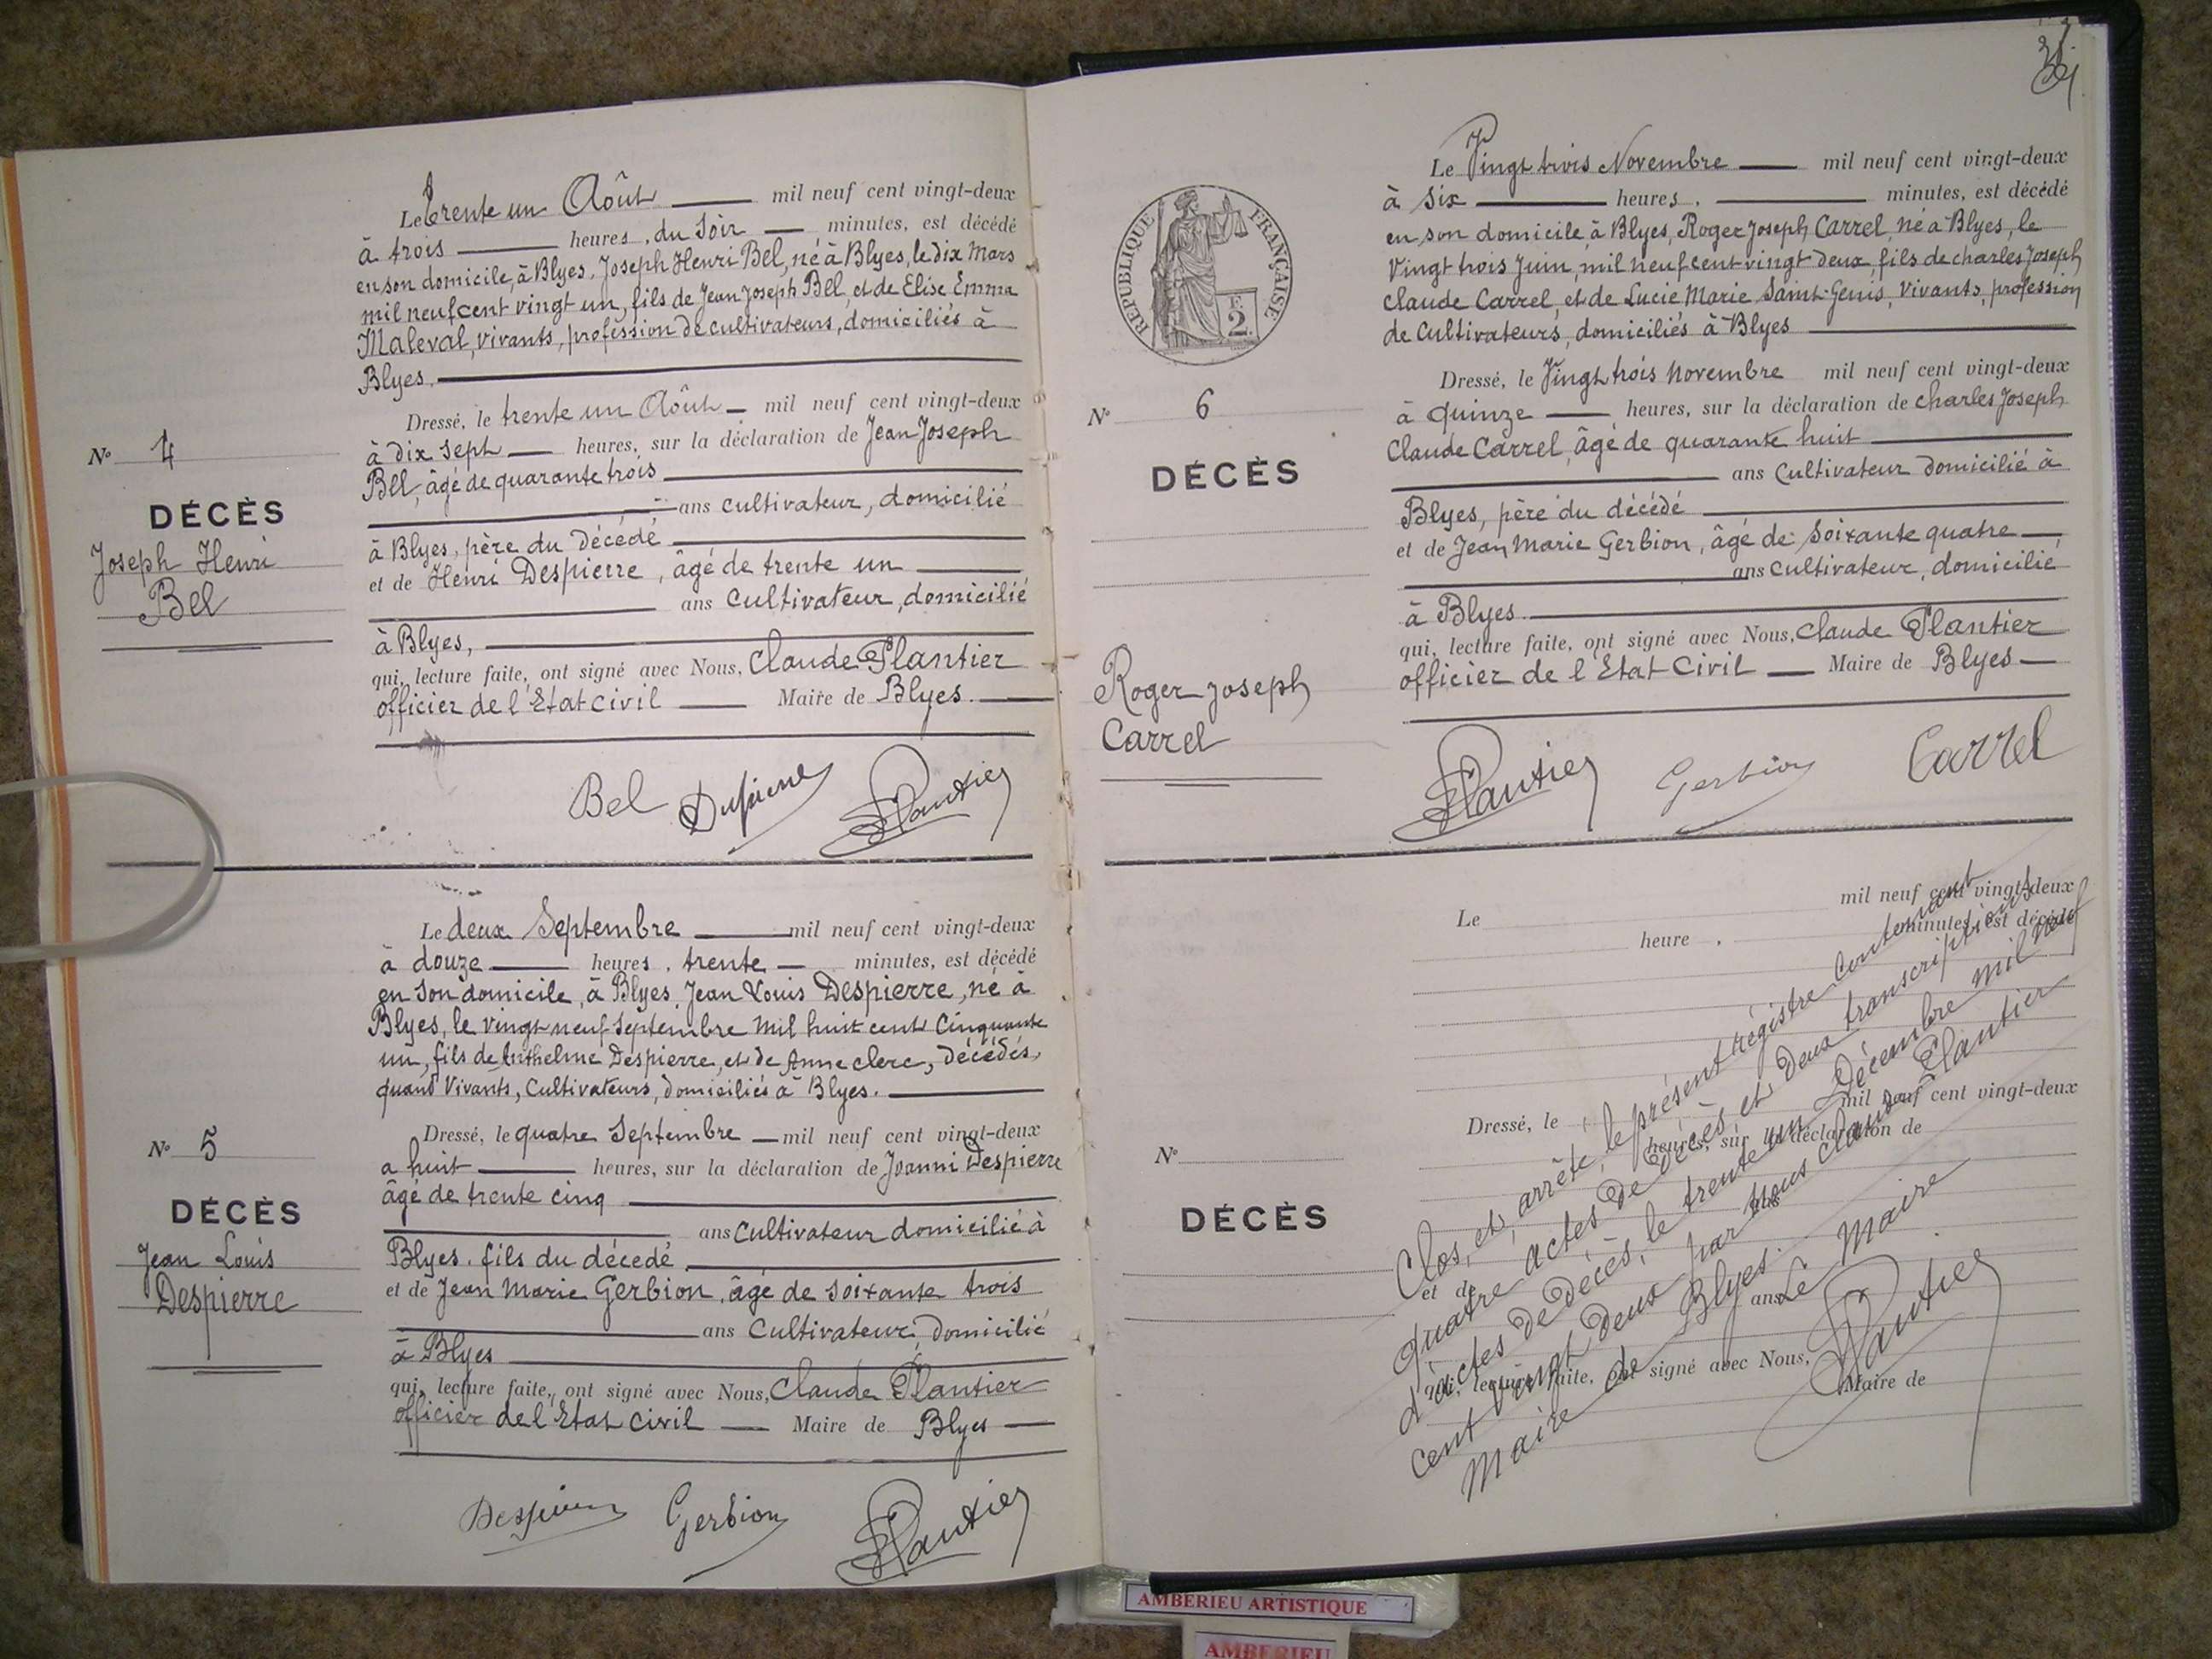 Le trente un Août mil neuf cent vingt-deux
à trois heures, du Soir minutes, est décédé
en son domicile, à Blyes, Joseph Henri Bel, né à Blyes, le dix Mars
mil neuf cent vingt un, fils de Jean Joseph Bel, et de Elise Emma
Maleval, vivants, profession de cultivateurs, domiciliés à
Blyes.
Dressé, le trente un Août mil neuf cent vingt-deux
à dix sept heures, sur la déclaration de Jean Joseph
Bel, âgé de quarante trois
ans cultivateur, domicilié
à Blyes, père du Décédé
et de Henri Despierre, âgé de trente un
ans Cultivateur, domicilié
à Blyes,
qui, lecture faite, ont signé avec Nous, Claude Plantier
officier de l'Etat civil Maire de Blyes.
N° 4
DÉCÈS
Joseph Henri
Bel
Bel Plantier
Le deux Septembre mil neuf cent vingt-deux
à douze heures, trente minutes, est décédé
en son domicile, à Blyes, Jean Louis Despierre, né à
Blyes, le vingt neuf Septembre Mil huit cent Cinquante
un, fils de Anthelme Despierre, et de Anne Clerc, Décédés,
quand Vivants, Cultivateurs, domiciliés à Blyes.
Dressé, le quatre Septembre mil neuf cent vingt-deux
a huit heures, sur la déclaration de Joanni Despierre
âgé de trente cinq
ans Cultivateur domicilié à
Blyes. fils du décedé,
et de Jean Marie Gerbion, âgé de soixante trois
ans Cultivateur, Domicilié
à Blyes
qui, lecture faite, ont signé avec Nous, Claude Plantier
officier de l'Etat civil Maire de Blyes
N° 5
DÉCÈS
Jean Louis
Despierre
Despierre Gerbion Plantier
RÉPUBLIQUE FRANÇAISE
2
Le Vingt trois Novembre mil neuf cent vingt-deux
à Six heures, minutes, est décédé
en son domicile à Blyes, Roger Joseph Carrel, né à Blyes, le
Vingt trois Juin, mil neuf cent vingt deux, fils de Charles Joseph
Claude Carrel, et de Lucie Marie Saint-Genis, Vivants, profession
de Cultivateurs, domiciliés à Blyes
Dressé, le Vingt trois Novembre mil neuf cent vingt-deux
à quinze heures, sur la déclaration de Charles Joseph
Claude Carrel, âgé de quarante huit
ans Cultivateur Domicilié à
Blyes, père du décédé
et de Jean Marie Gerbion, âgé de Soixante quatre
ans Cultivateur, domicilié
à Blyes.
qui, lecture faite, ont signé avec Nous, Claude Plantier
officier de l'Etat Civil Maire de Blyes
N° 6
DÉCÈS
Roger Joseph
Carrel
Plantier Gerbion Carrel
Le mil neuf cent vingt-deux
heure , minutes, est décédé
Dressé, le mil neuf cent vingt-deux
heures, sur la déclaration de
ans
et de
ans
qui, lecture faite, ont signé avec Nous,
Maire de
N°
DÉCÈS
Clos, et, arrêté, le présent régistre Contenant
quatre actes de Décès et Deux transcriptions
d'actes de Décès, le trente un Décembre mil neuf
cent vingt deux par Nous Claude Plantier
Maire de Blyes. Le Maire
Plantier
AMBERIEU ARTISTIQUE
AMBERIEU